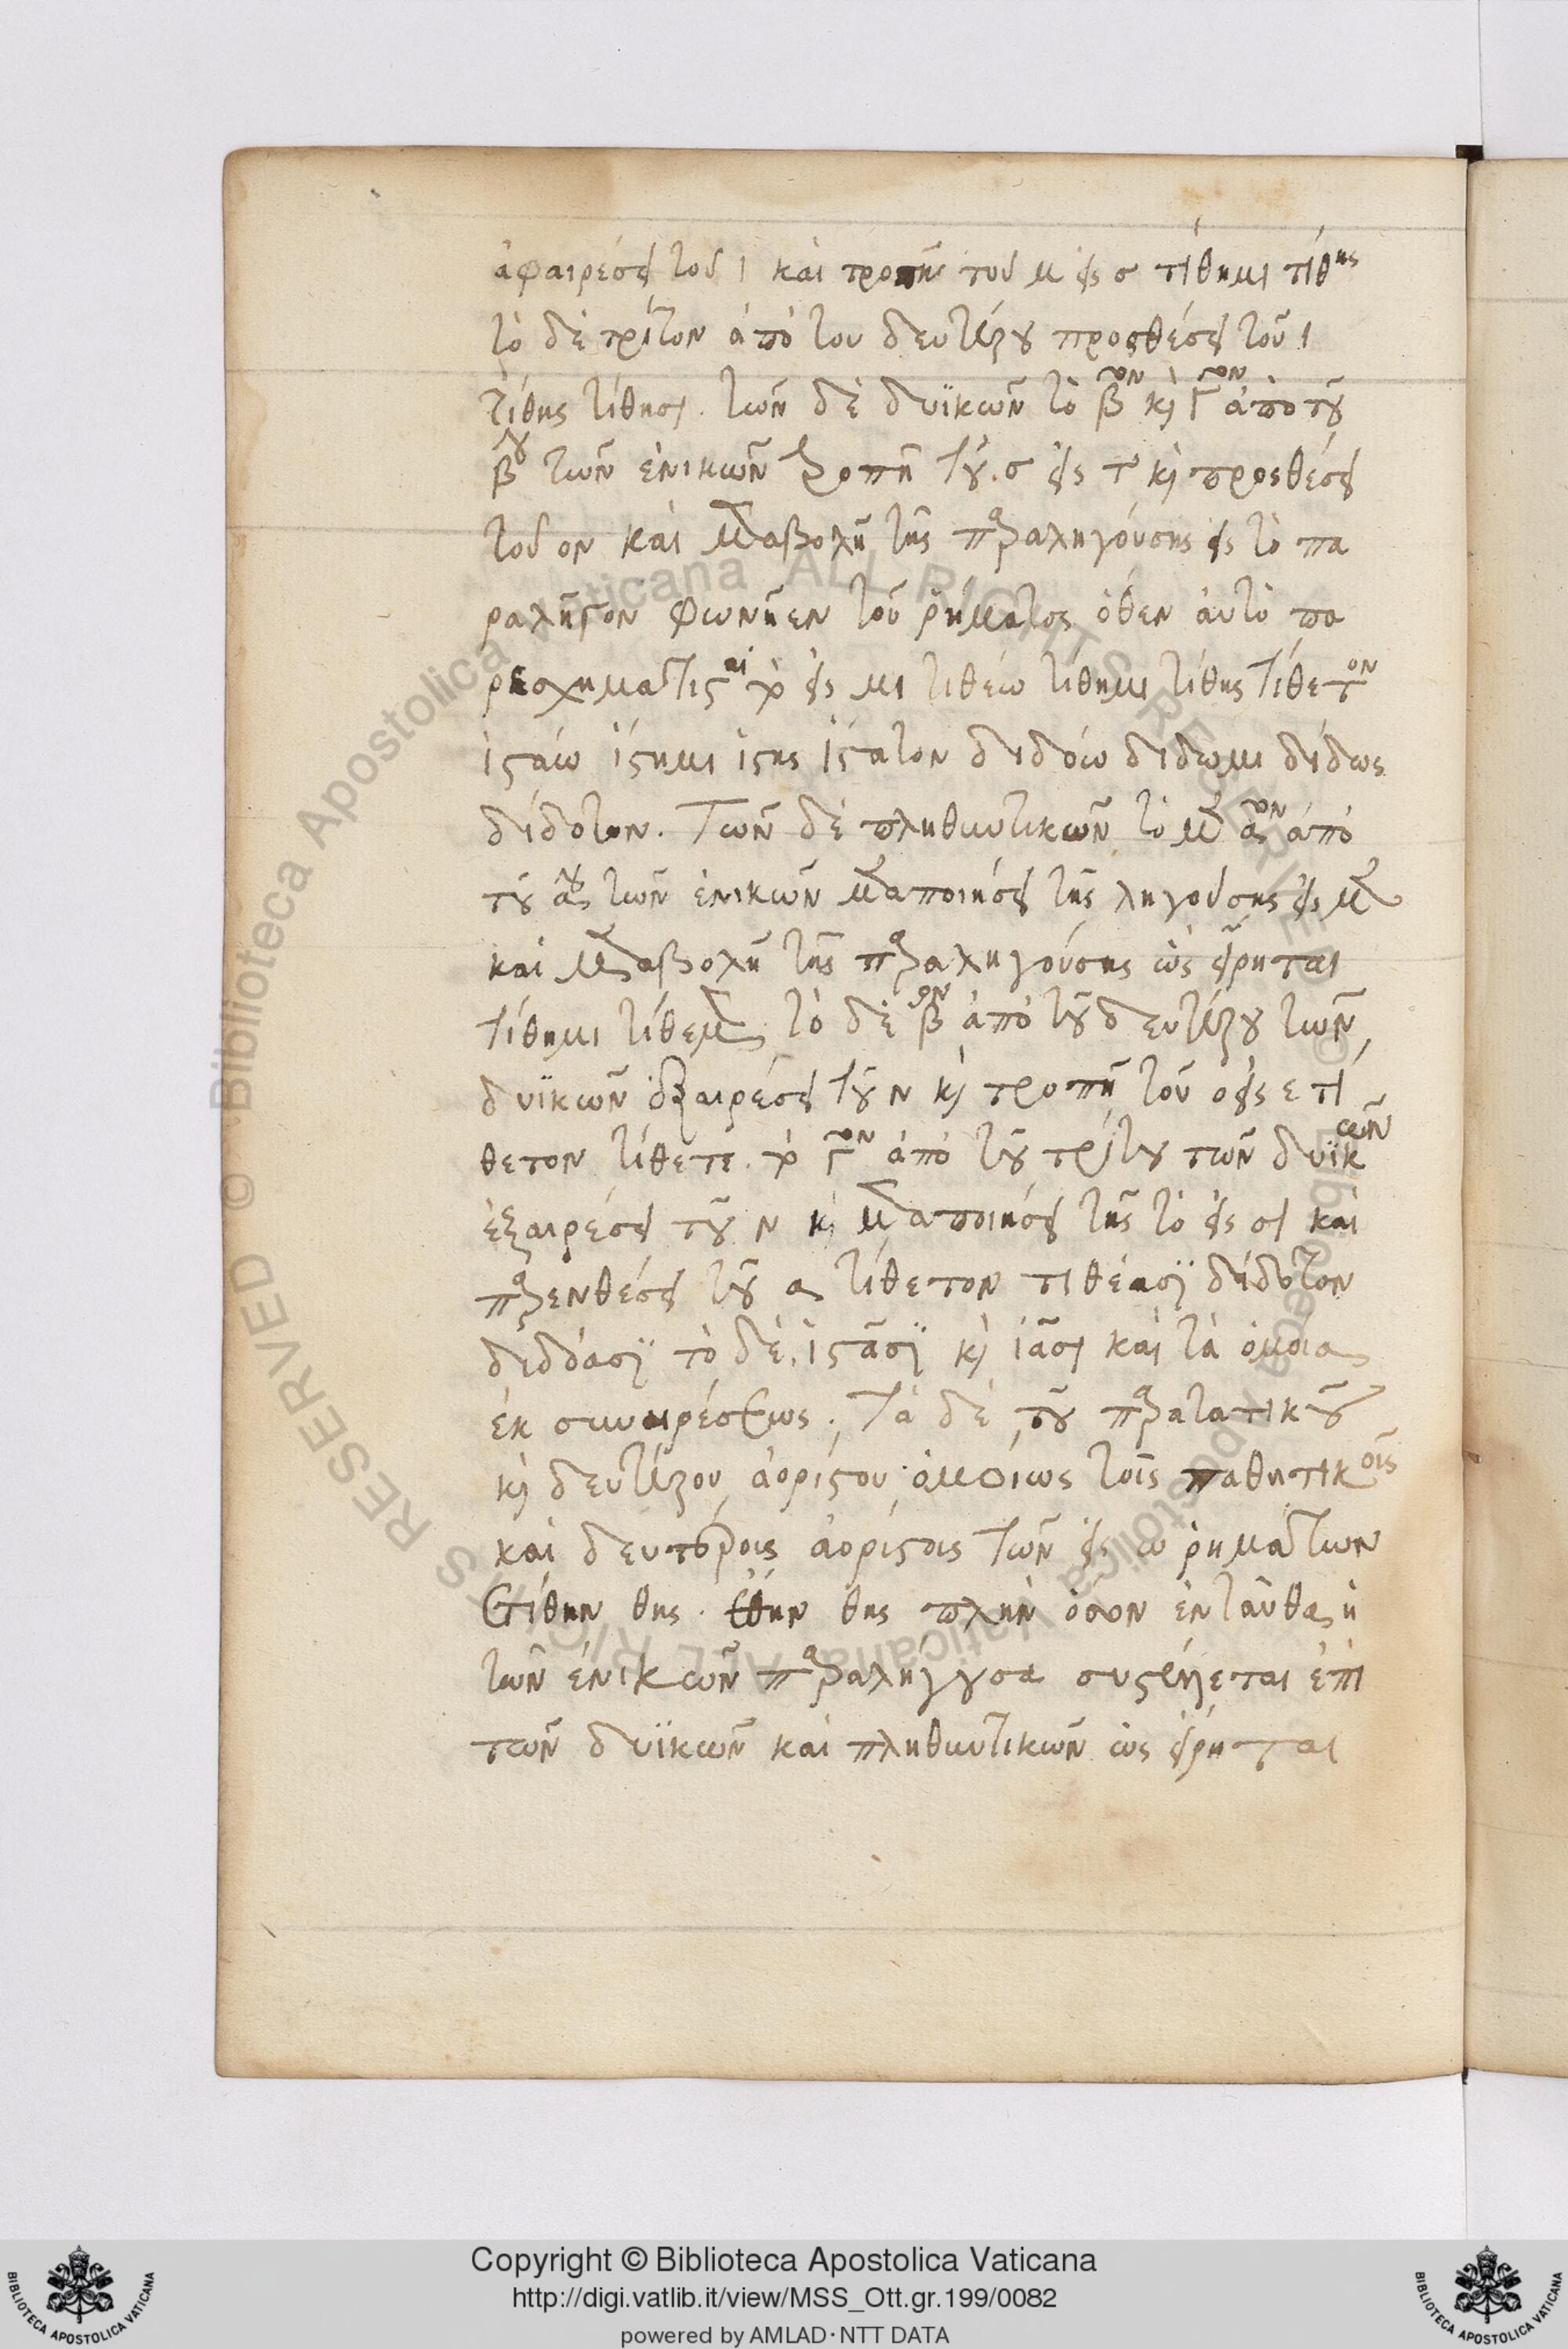 ἀφαιρέσει τοῦ ι καὶ τροπῆ τοῦ μ εἰς σ τίθημι τίθης
τὸ δὲ τρίτον ἀπὸ του δευτέρου προςθέσει τοῦ ι
τίθης τίθησι. τῶν δὲ δυϊκῶν τὸ βον κὶ γον ἀπὸ του
βου τῶν ἑνικῶν τροπῆ τοῦ σ εἰς τ κὶ προςθέσει
τοῦ ον καὶ μεταβολῆ τῆς παραληγούσης εἰς τὸ πα
ραλῆγον φωνῆεν τοῦ ῥήματος ὅθεν αὐτὸ πα
ρεσχημάτισται τὸ εἰς μι τιθέω τίθημι τίθης τίθετον
ἱστάω ἵστημι ἵστης ἵστατον διδόω δίδωμι δίδως
δίδοτον. Τῶν δὲ πληθυντικῶν τὸ μὲν αον ἀπὸ
τοῦ αου τῶν ἑνικῶν μεταποιήσει τῆς ληγούσης εἰς μεν
καὶ μεταβολῆ τῆς παραληγούσης ὡς εἴρηται
τίθημι τίθεμεν, τὸ δὲ βον ἀπὸ τοῦ δευτέρου τῶν
δυϊκῶν ἐξαιρέσει τοῦ ν κὶ τροπῆ τοῦ ο εἰς ε τί
θετον τίθετε. τὸ γον ἀπὸ τοῦ τρίτου τῶν δυϊκῶν
ἐξαιρέσει τοῦ ν κὶ μεταποιήσει τῆς το εἰς σι καὶ
παρενθέσει τοῦ α τίθετον τιθέασϊ δίδοτον
διδόασϊ τὸ δὲ ἱστᾶσϊ κὶ ἱᾶσι καὶ τὰ ὅμοια
ἐκ συναιρέσεως. Τὰ δὲ τοῦ παρατατικοῦ
κὶ δευτέρου ἀορίστου ὁμοίως τοῖς παθητικοῖς
καὶ δευτέροις ἀορίστοις τῶν εἰς ω ῥημάτων
ἐτίθην θης. ἔθην θης πλὴν ὅσον ἐνταῦθα ἡ
τῶν ἑνικῶν παραλήγουσα συστέλλεται ἐπὶ
τῶν δυϊκῶν καὶ πληθυντικῶν ὡς εἴρηται
Copyright © Biblioteca Apostolica Vaticana
http://digi.vatlib.it/view/MSS_Ott.gr.199/0082
powered by AMLAD·NTT DATA
BIBLIOTECA APOSTOLICA VATICANA
BIBLIOTECA APOSTOLICA VATICANA
© Biblioteca Apostolica Vaticana ALL RIGHTS RESERVED
© Biblioteca Apostolica Vaticana ALL RIGHTS RESERVED